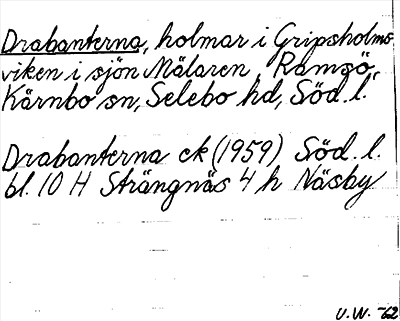 Drabanterna, holmar i Gripsholms-
viken i sjön Mälaren, Ramsö,
Kärnbo sn, Selebo hd, Söd. l.
Drabanterna ek (1959) Söd. l.
bl. 10 H Strängnäs 4 h Näsby
U.W. -62